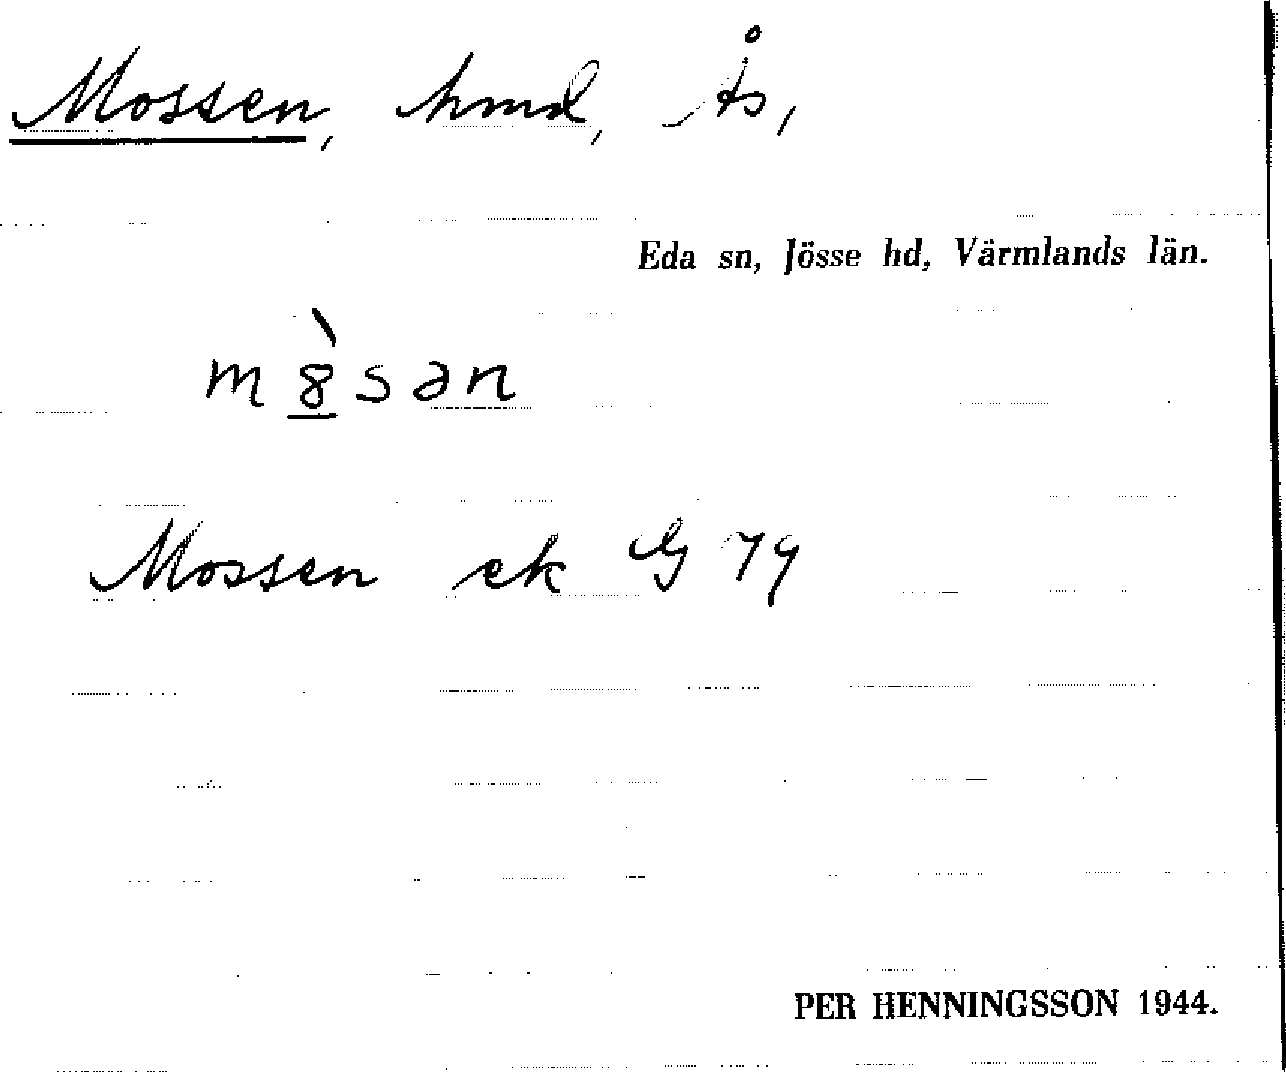 Mossen, hmd, Ås,
Eda sn, Jösse hd, Värmlands län.
m8̲̀sən
Mossen ek G 79
PER HENNINGSSON 1944.